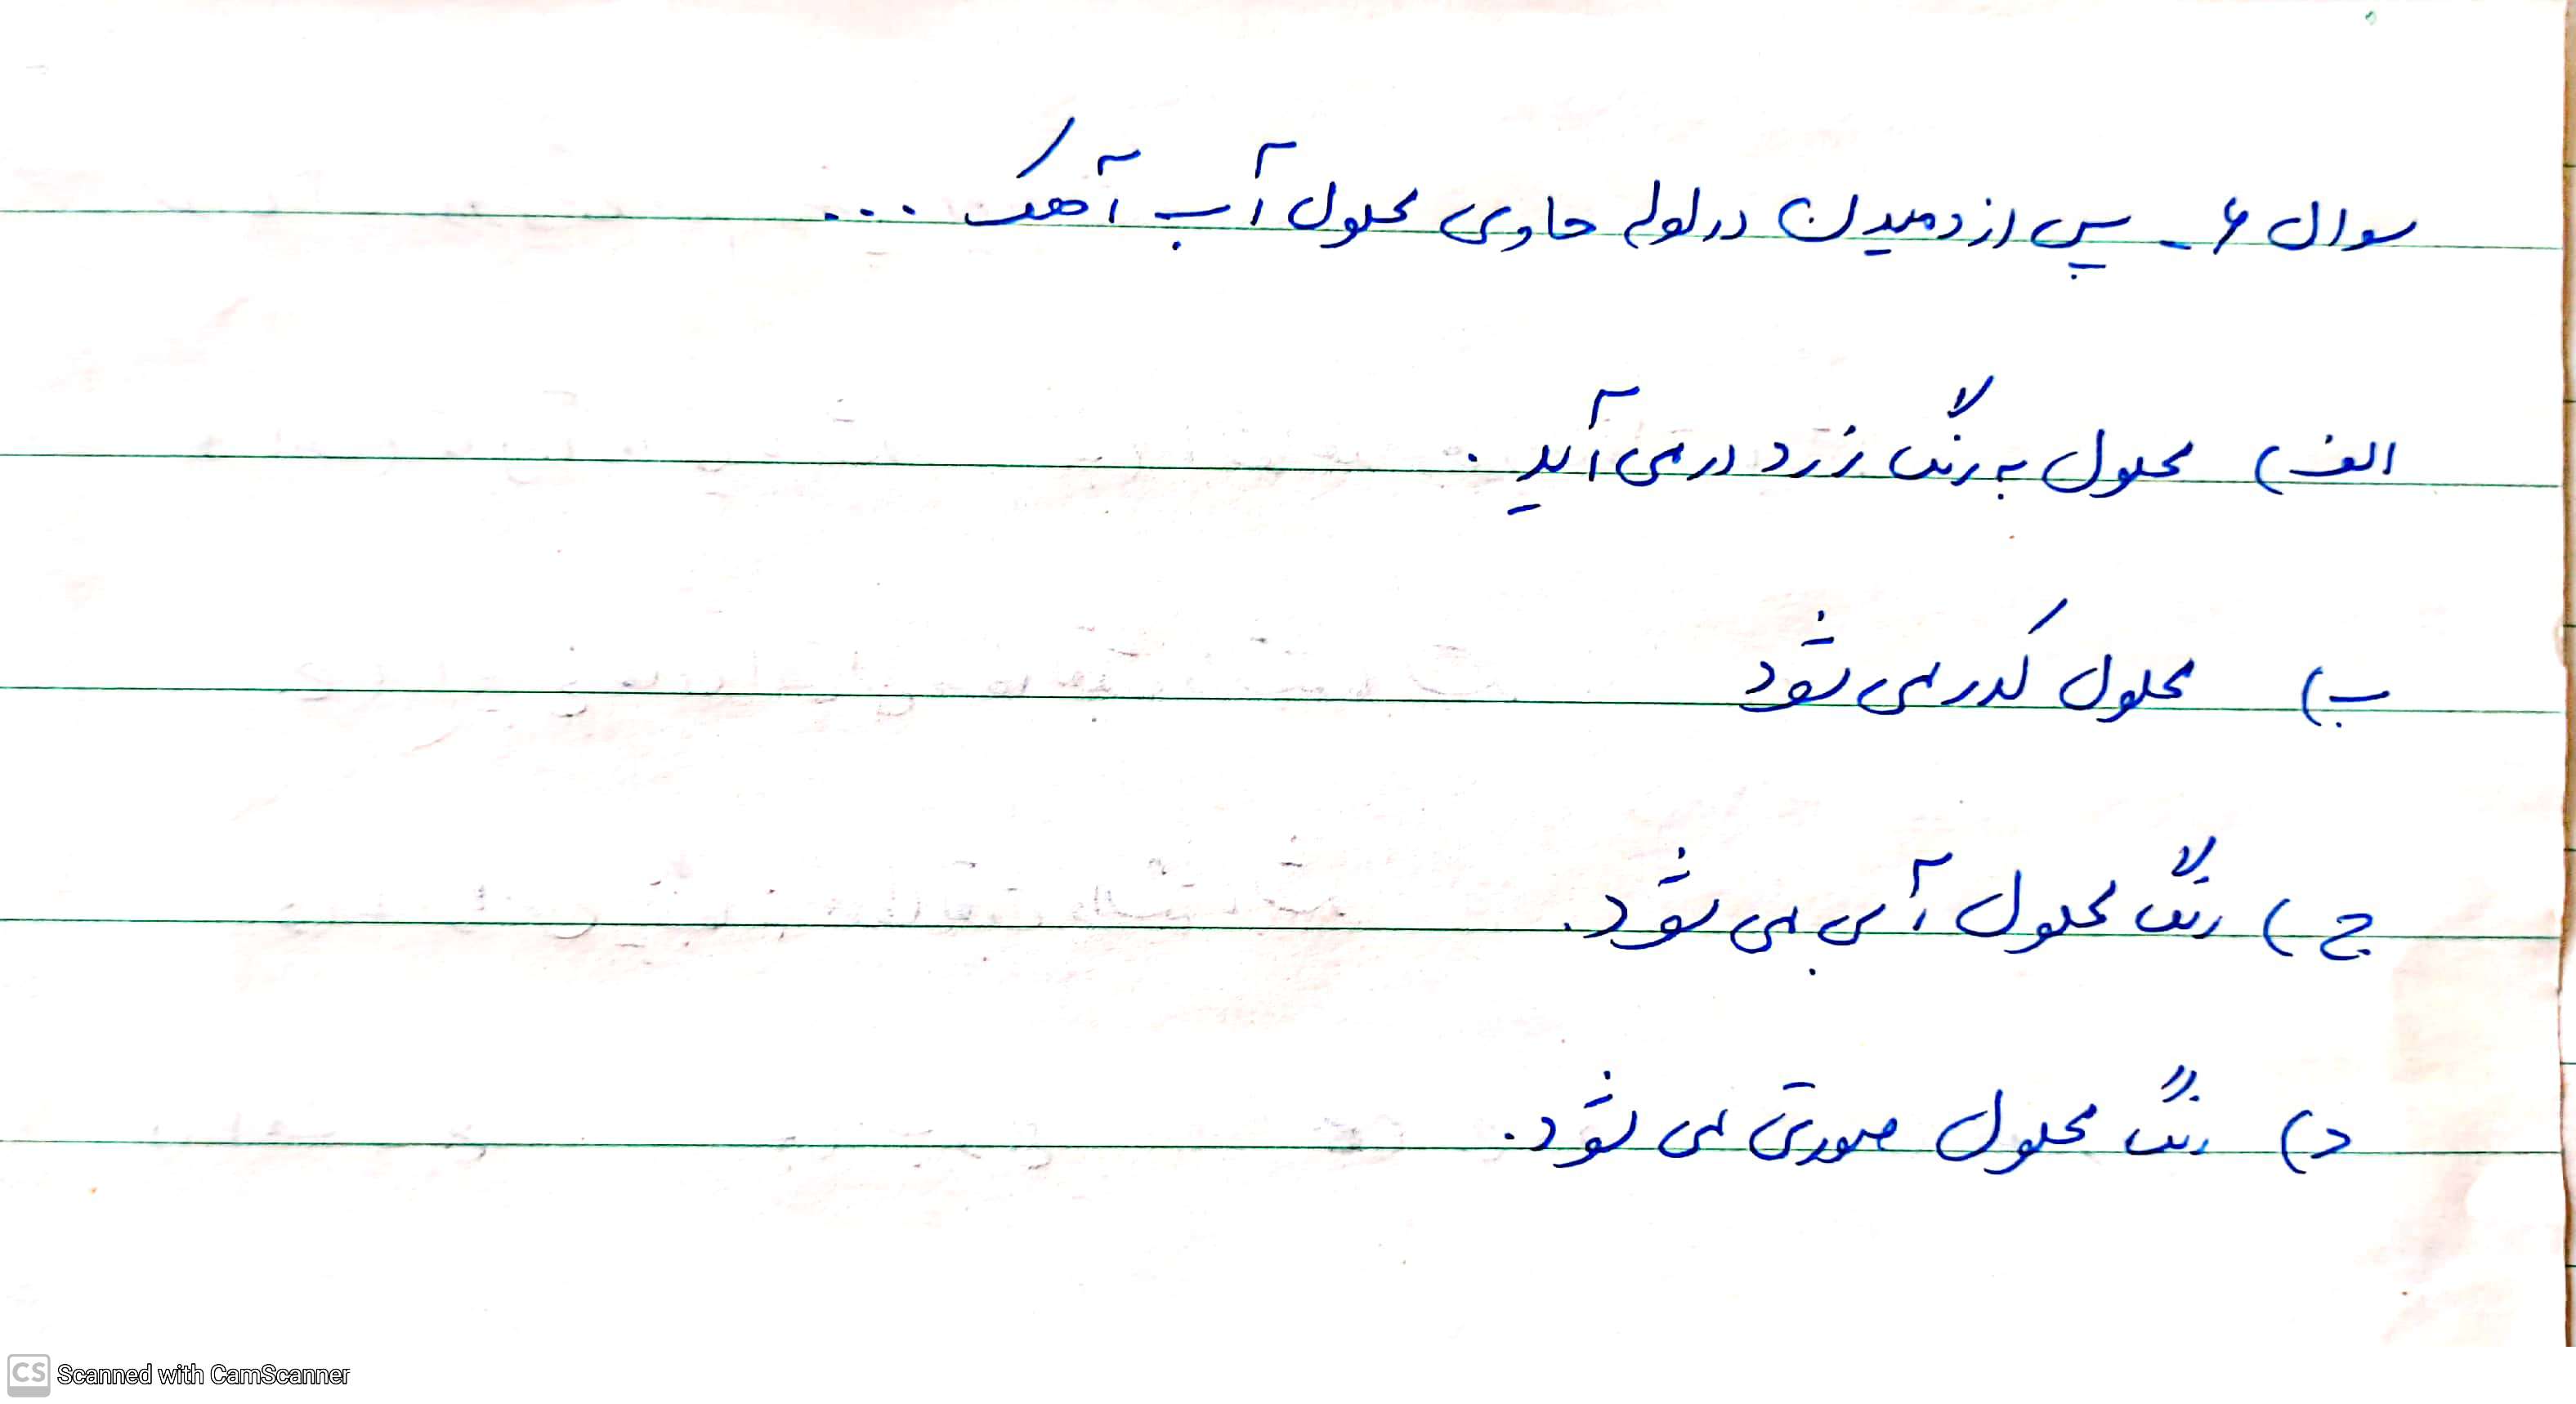 سوال ۶ - پس از دمیدن در لوله حاوی محلول آب آهک ...
الف) محلول به رنگ زرد در می آید .
ب) محلول کدر می شود
ج) رنگ محلول آبی می شود.
د) رنگ محلول صورتی می شود.
CS Scanned with CamScanner